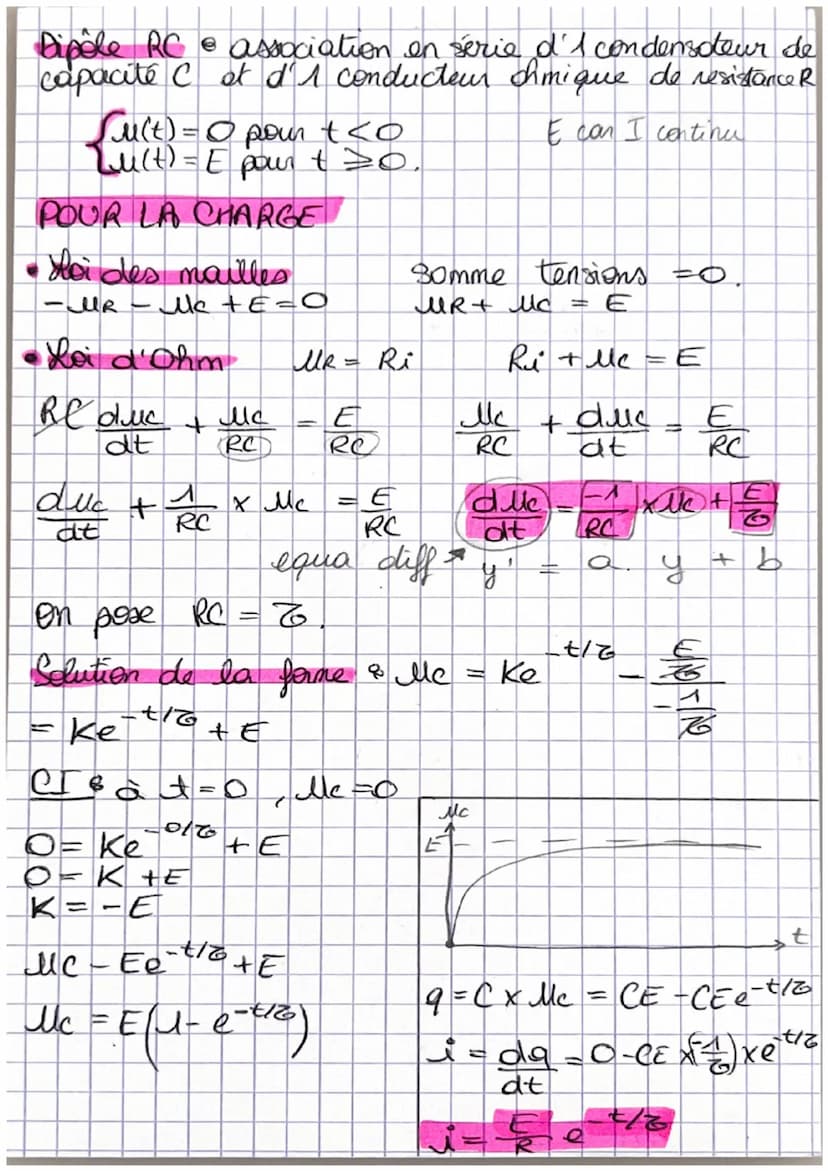 Dipôle RC : association en série d'1 condensateur de
capacité C et d'1 conducteur ohmique de resistance R
u(t) = 0 pour t < 0
E car I continu
u(t) = E pour t ⩾ 0.
POUR LA CHARGE
• Loi des mailles    Somme tensions = 0.
- uR - uc + E = 0    uR + uc = E
• Loi d'Ohm    uR = Ri    Ri + uc = E
RC duc/dt + uc/RC = E/RC    uc/RC + duc/dt = E/RC
duc/dt + 1/RC × uc = E/RC    duc/dt = -1/RC × uc + E/τ
equa diff ↗ y' = a. y + b
On pose RC = τ.
Solution de la forme : uc = Ke^(-t/τ) - (E/τ)/(-1/τ)
= Ke^(-t/τ) + E
CI : à t = 0, uc = 0
0 = Ke^(-0/τ) + E
0 = K + E
K = - E
uc - Ee^(-t/τ) + E
uc = E(1 - e^(-t/τ))
uc
E
t
q = C × uc = CE - CEe^(-t/τ)
i = dq/dt = 0 - CE × (-1/τ) × e^(-t/τ)
i = E/R e^(-t/τ)